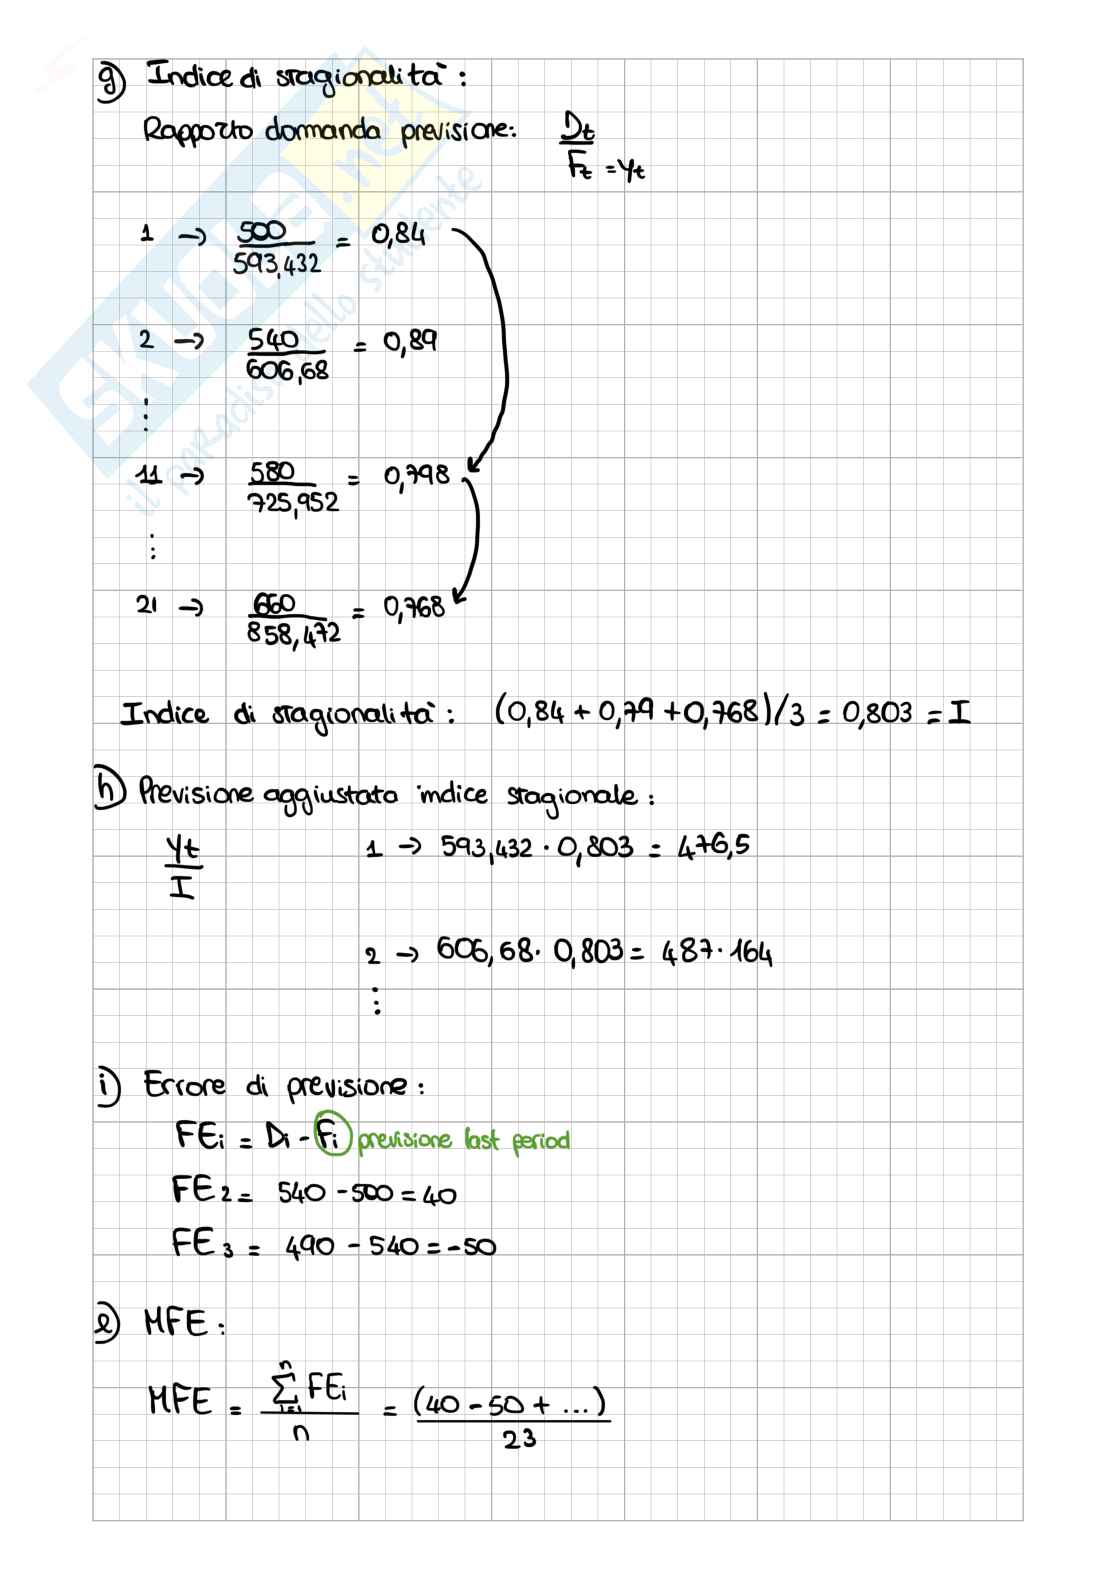 g) Indice di stagionalità:
Rapporto domanda previsione: Dt / Ft = yt
1 → 500 / 593,432 = 0,84
2 → 540 / 606,68 = 0,89
⋮
11 → 580 / 725,952 = 0,798
⋮
21 → 660 / 858,472 = 0,768
Indice di stagionalità: (0,84 + 0,79 + 0,768)/3 = 0,803 = I
h) Previsione aggiustata indice stagionale:
yt / I
1 → 593,432 · 0,803 = 476,5
2 → 606,68 · 0,803 = 487·164
⋮
i) Errore di previsione:
FEi = Di - Fi previsione last period
FE2 = 540 - 500 = 40
FE3 = 490 - 540 = -50
l) MFE:
MFE = Σ(i=1, n) FEi / n = (40 - 50 + ...) / 23
SKUOLA.net
il paradiso dello studente